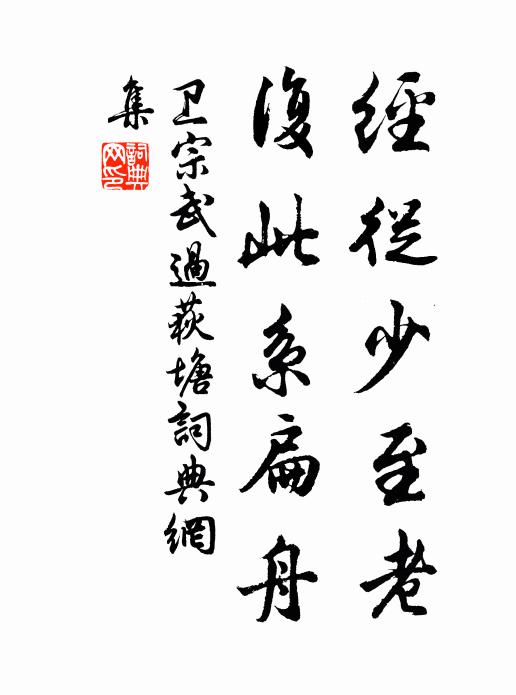 經從少至老
復此系扁舟
卫宗武過荻塘詞典網
集
詞典網印